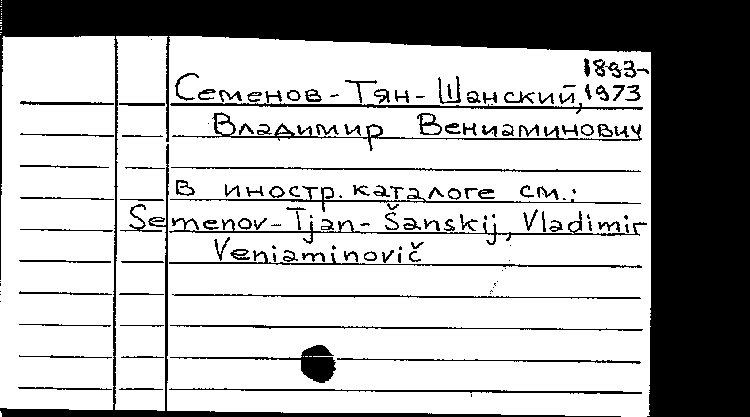 1893-
Семенов-Тян-Шанский, 1973
Владимир Вениаминович
в иностр. каталоге см.:
Semenov-Tjan-Šanskij, Vladimir
Veniaminovič